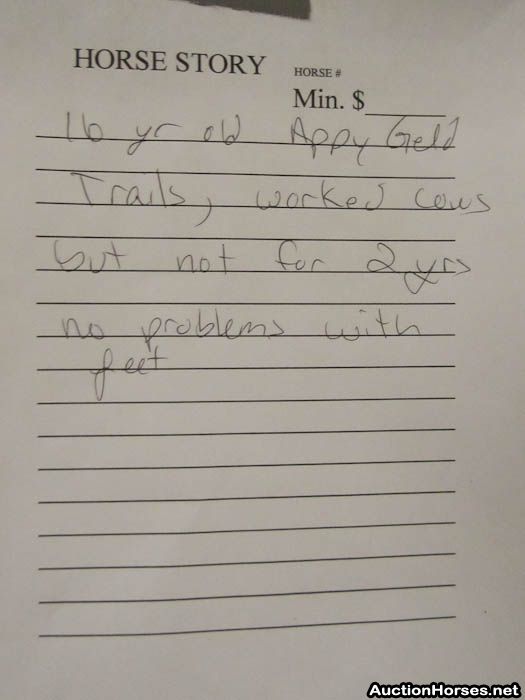 HORSE STORY HORSE #
Min. $
16 yr old Appy Geld
Trails, worked cows
but not for 2 yrs
no problems with
feet
AuctionHorses.net